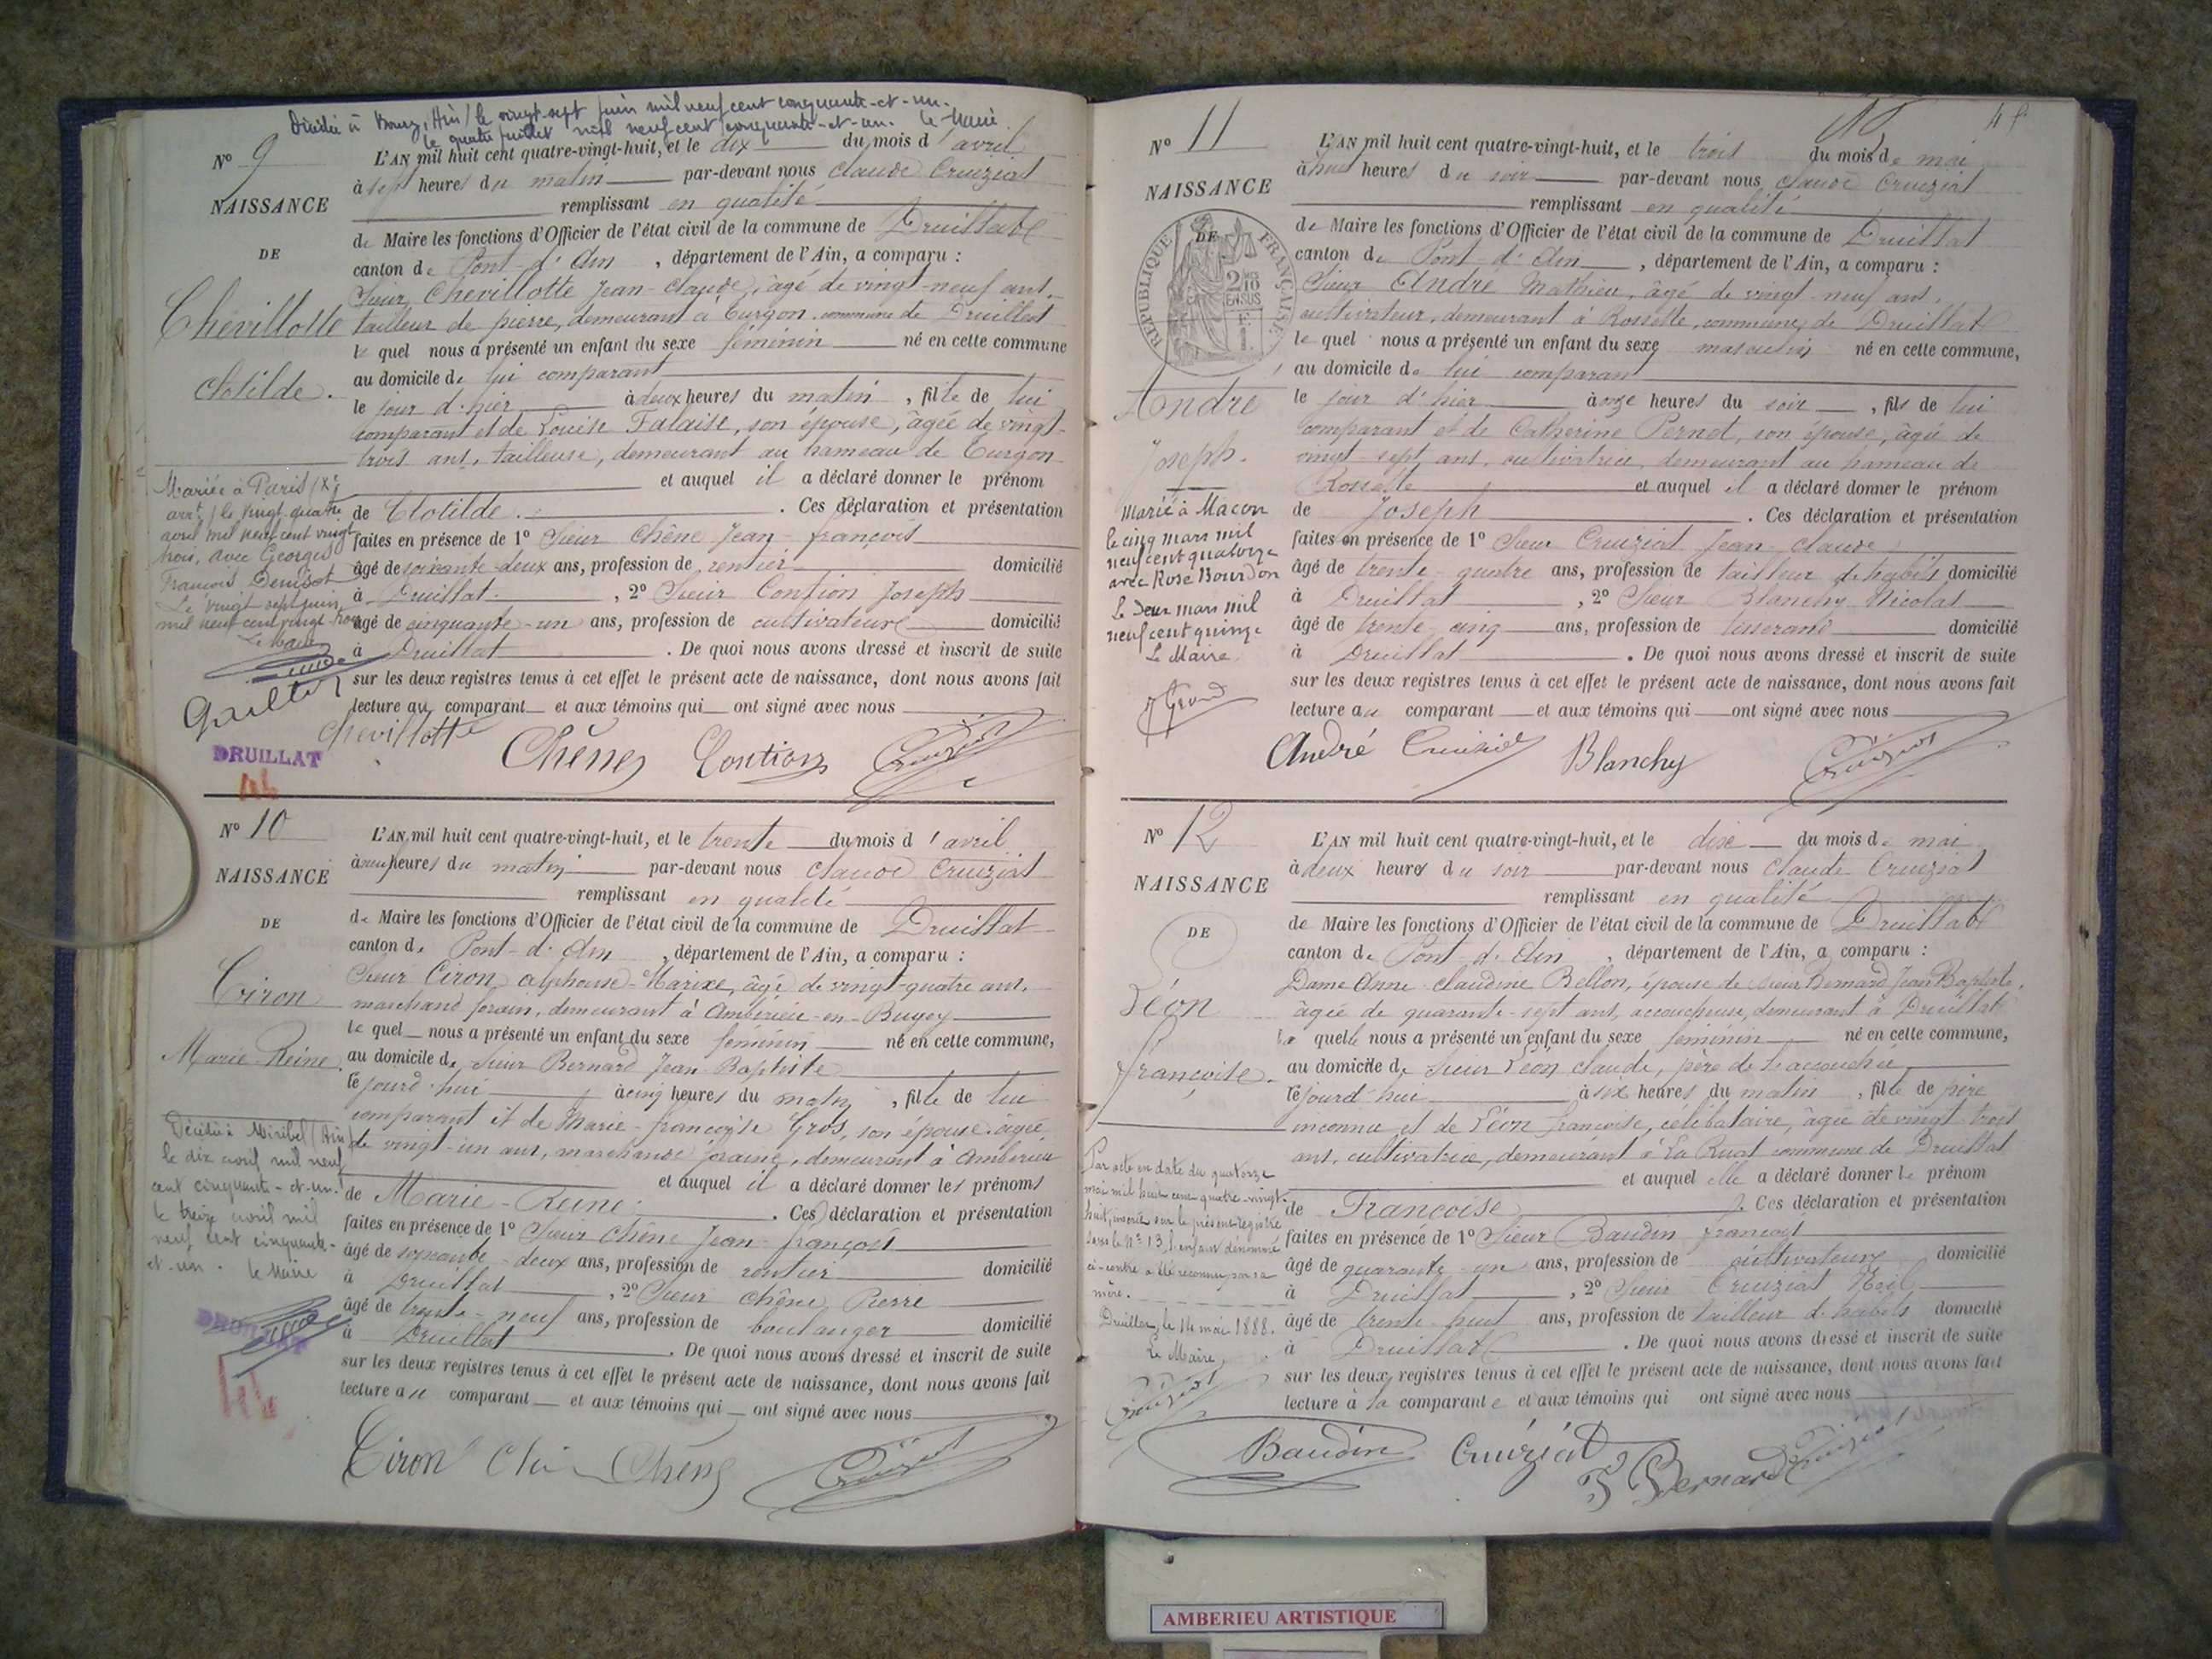 Décédée à Bourg (Ain) le vingt-sept juin mil neuf cent cinquante-et-un.
le quatre juillet mil neuf cent cinquante-et-un. le Maire
N° 9
NAISSANCE
DE
Chevillotte
Clotilde.
L'AN mil huit cent quatre-vingt-huit, et le dix du mois d'avril
à sept heures du matin par-devant nous Claude Cruiziat
remplissant en qualité
de Maire les fonctions d'Officier de l'état civil de la commune de Druillat
canton de Pont-d'Ain, département de l'Ain, a comparu :
Sieur Chevillotte Jean-Claude, âgé de vingt-neuf ans,
tailleur de pierre, demeurant à Turgon, commune de Druillat
lequel nous a présenté un enfant du sexe féminin né en cette commune
au domicile de lui comparant
le jour d'hier à deux heures du matin, fille de lui
comparant et de Louise Falaise, son épouse, âgée de vingt-
trois ans, tailleuse, demeurant au hameau de Turgon
et auquel il a déclaré donner le prénom
de Clotilde. Ces déclaration et présentation
faites en présence de 1° Sieur Chêne Jean-françois
âgé de soixante-deux ans, profession de rentier domicilié
à Druillat, 2° Sieur Contion Joseph
âgé de cinquante-un ans, profession de cultivateur domicilié
à Druillat. De quoi nous avons dressé et inscrit de suite
sur les deux registres tenus à cet effet le présent acte de naissance, dont nous avons fait
lecture au comparant et aux témoins qui ont signé avec nous
Mariée à Paris (Xe
arrt) le vingt quatre
avril mil neuf cent vingt
trois, avec Georges
François Denisot
Le vingt sept juin
mil neuf cent vingt trois
Le Maire
Chevillotte Chêne Contion Cruiziat
DRUILLAT
N° 10
NAISSANCE
DE
Ciron
Marie-Reine.
L'AN mil huit cent quatre-vingt-huit, et le trente du mois d'avril
à neuf heures du matin par-devant nous Claude Cruiziat
remplissant en qualité
de Maire les fonctions d'Officier de l'état civil de la commune de Druillat
canton de Pont-d'Ain, département de l'Ain, a comparu :
Sieur Ciron alphonse-, âgé de vingt-quatre ans,
marchand forain, demeurant à Ambérieu-en-Bugey
lequel nous a présenté un enfant du sexe féminin né en cette commune,
au domicile de Sieur Bernard Jean-Baptiste
cejourd'hui à cinq heures du matin, fille de lui
comparant et de Marie-françoise Gros, son épouse, âgée
de vingt-un ans, marchande foraine, demeurant à Ambérieu
et auquel il a déclaré donner les prénoms
de Marie-Reine. Ces déclaration et présentation
faites en présence de 1° Sieur Chêne Jean-françois
âgé de soixante-deux ans, profession de rentier domicilié
à Druillat, 2° Sieur Chêne Pierre
âgé de trente-neuf ans, profession de boulanger domicilié
à Druillat. De quoi nous avons dressé et inscrit de suite
sur les deux registres tenus à cet effet le présent acte de naissance, dont nous avons fait
lecture au comparant et aux témoins qui ont signé avec nous
Décédée à Miribel (Ain)
le dix avril mil neuf
cent cinquante-et-un.
le treize avril mil
neuf cent cinquante-
et-un. le Maire
DRUILLAT
Ciron Chêne Cruiziat
N° 11
NAISSANCE
DE
RÉPUBLIQUE FRANÇAISE
André
Joseph.
L'AN mil huit cent quatre-vingt-huit, et le trois du mois de mai
à heures du soir par-devant nous Claude Cruiziat
remplissant en qualité
de Maire les fonctions d'Officier de l'état civil de la commune de Druillat
canton de Pont-d'Ain, département de l'Ain, a comparu :
Sieur André Mathieu, âgé de vingt-neuf ans,
cultivateur, demeurant à Rossette, commune de Druillat
lequel nous a présenté un enfant du sexe masculin né en cette commune,
au domicile de lui comparant
le jour d'hier à onze heures du soir, fils de lui
comparant et de Catherine Pernet, son épouse, âgée de
vingt-sept ans, cultivatrice, demeurant au hameau de
Rossette et auquel il a déclaré donner le prénom
de Joseph. Ces déclaration et présentation
faites en présence de 1° Sieur Cruiziat Jean-Claude
âgé de trente-quatre ans, profession de tailleur d'habits domicilié
à Druillat, 2° Sieur Blanchy Nicolas
âgé de trente-cinq ans, profession de tisserand domicilié
à Druillat. De quoi nous avons dressé et inscrit de suite
sur les deux registres tenus à cet effet le présent acte de naissance, dont nous avons fait
lecture au comparant et aux témoins qui ont signé avec nous
Marié à Macon
le cinq mars mil
neuf cent quatorze
avec Rose Bourdon
Le Deux mars mil
neuf cent quinze
Le Maire
André Cruiziat Blanchy Cruiziat
N° 12
NAISSANCE
DE
Léon
françoise.
L'AN mil huit cent quatre-vingt-huit, et le dix du mois de mai
à deux heures du soir par-devant nous Claude Cruiziat
remplissant en qualité
de Maire les fonctions d'Officier de l'état civil de la commune de Druillat
canton de Pont-d'Ain, département de l'Ain, a comparu :
Dame Anne-Claudine Bellon, épouse de sieur Bernard Jean-Baptiste,
âgée de quarante-sept ans, accoucheuse, demeurant à Druillat
laquelle nous a présenté un enfant du sexe féminin né en cette commune,
au domicile de Sieur Léon Claude, père de l'accouchée
cejourd'hui à six heures du matin, fille de père
inconnu et de Léon françoise, célibataire, âgée de vingt-trois
ans, cultivatrice, demeurant à La Ruat commune de Druillat
et auquel elle a déclaré donner le prénom
de Françoise. Ces déclaration et présentation
faites en présence de 1° Sieur Baudin françois
âgé de quarante-un ans, profession de cultivateur domicilié
à Druillat, 2° Sieur Cruiziat Noël
âgé de trente-huit ans, profession de tailleur d'habits domicilié
à Druillat. De quoi nous avons dressé et inscrit de suite
sur les deux registres tenus à cet effet le présent acte de naissance, dont nous avons fait
lecture à la comparante et aux témoins qui ont signé avec nous
Par acte en date du quatorze
mai mil huit cent quatre-vingt-
huit, inscrit sur le présent registre
sous le N° 13, l'enfant dénommé
ci-contre a été reconnu par sa
mère.
Druillat, le 14 mai 1888.
Le Maire,
Cruiziat
Baudin Cruiziat Bernard Cruiziat
AMBERIEU ARTISTIQUE